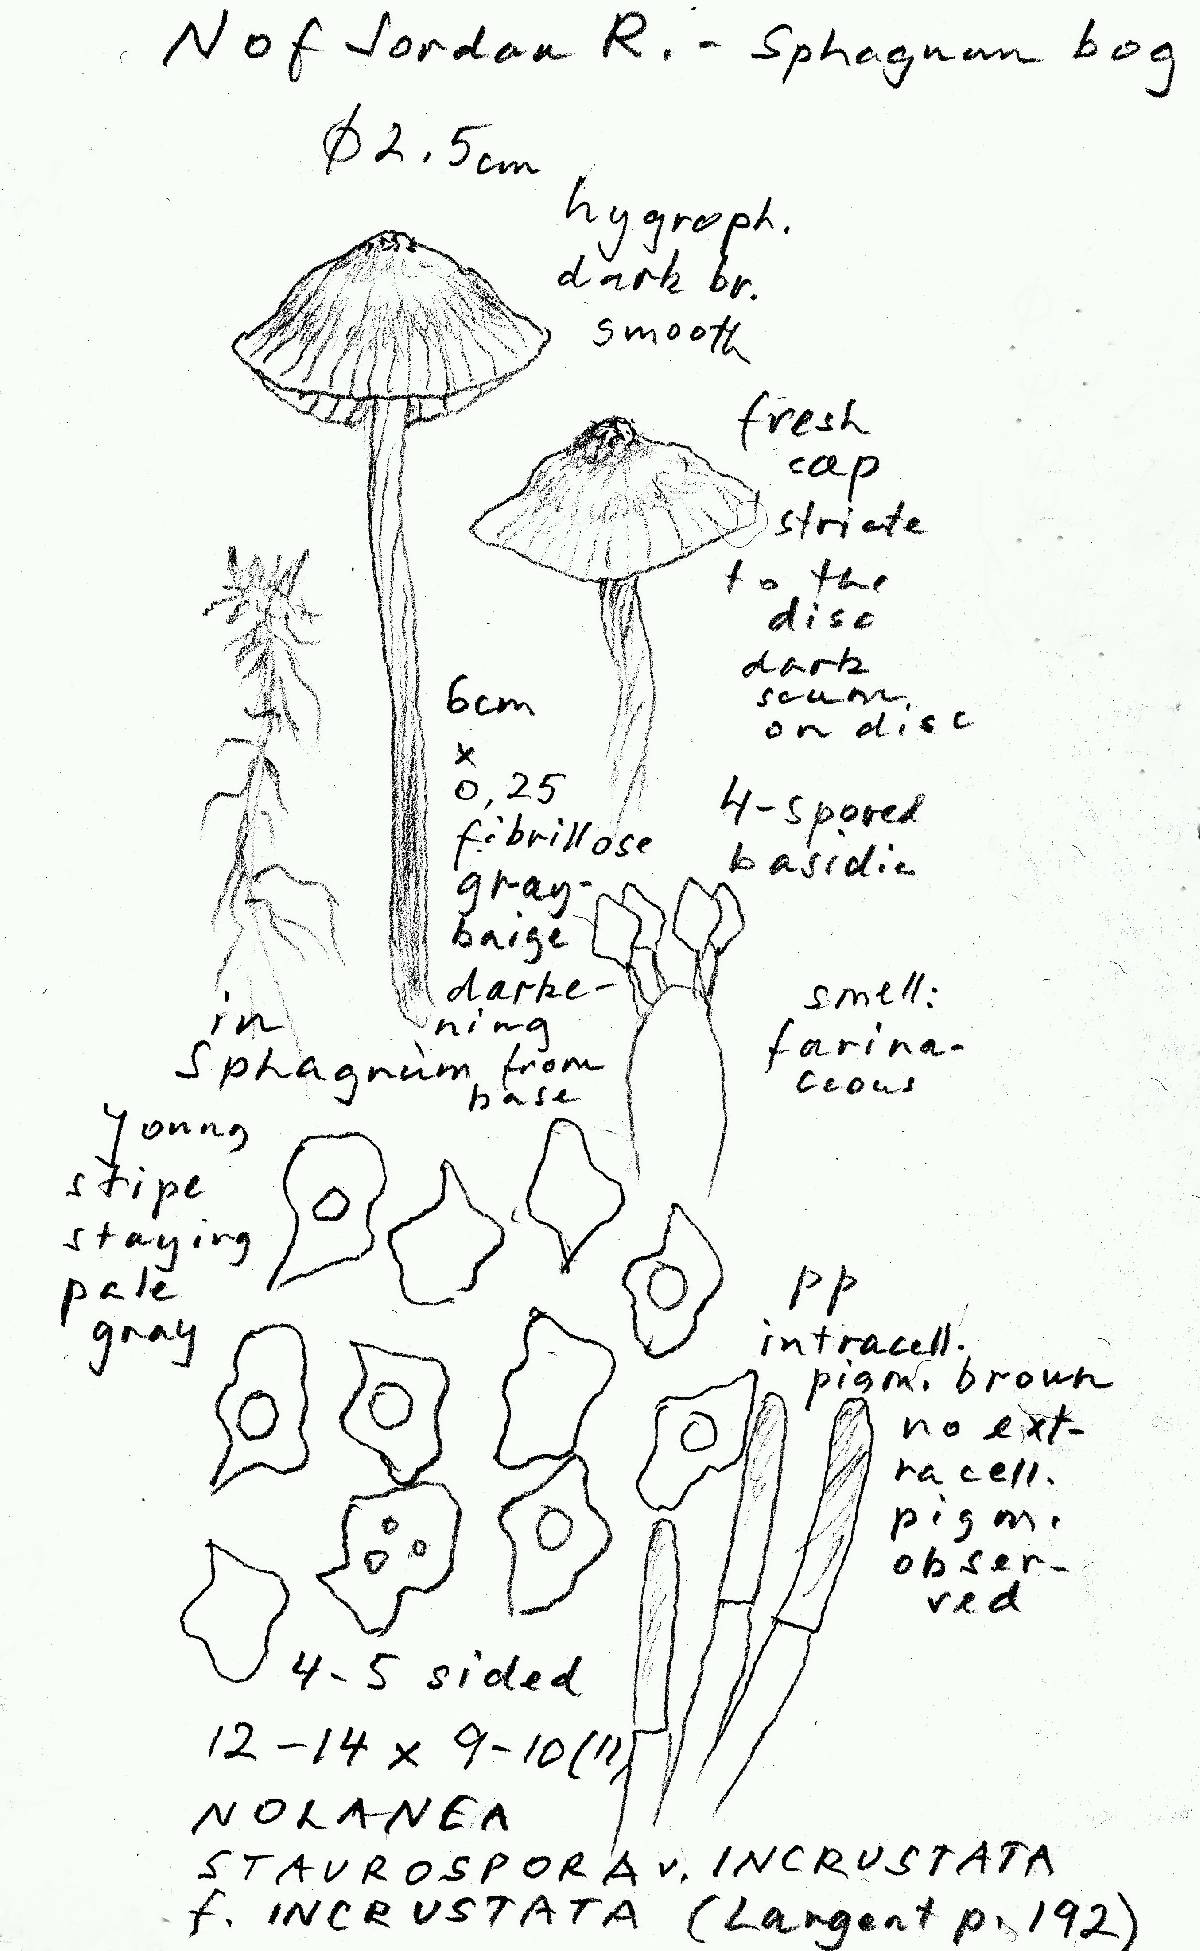 N of Jordan R. - Sphagnum bog
φ 2.5cm
hygroph.
dark br.
smooth
fresh
cap
striate
to the
disc
dark
scum
on disc
6cm
x
0,25
fibrillose
gray-
baige
darke-
ning
from
base
4-spored
basidia
smell:
farina-
ceous
in
Sphagnum
young
stipe
staying
pale
gray
pp
intracell.
pigm. brown
no ext-
racell.
pigm.
obser-
ved
4-5 sided
12-14 x 9-10(11)
NOLANEA
STAUROSPORA v. INCRUSTATA
f. INCRUSTATA (Largent p. 192)